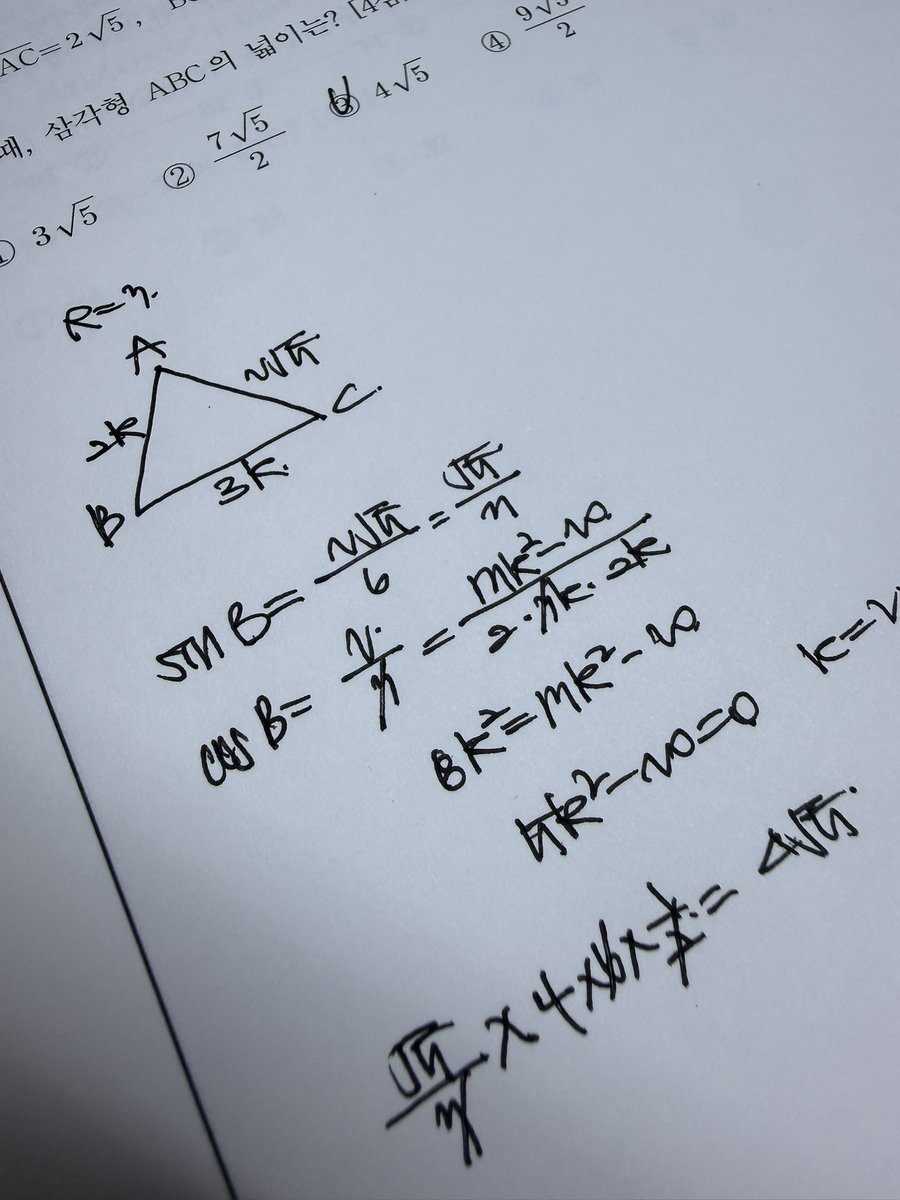 AC=2√5,
때, 삼각형 ABC의 넓이는? [4
① 3√5 ② 7√5/2 ③ 4√5 ④ 9√5/2
R=3.
A
2√5
C.
2k
3k.
B
sin B = 2√5/6 = √5/3
cos B = 2/3 = 13k²-20/2·3k·2k
8k²=13k²-20
5k²-20=0 k=2
√5/3 × 4 × 6 × 1/2 = 4√5.